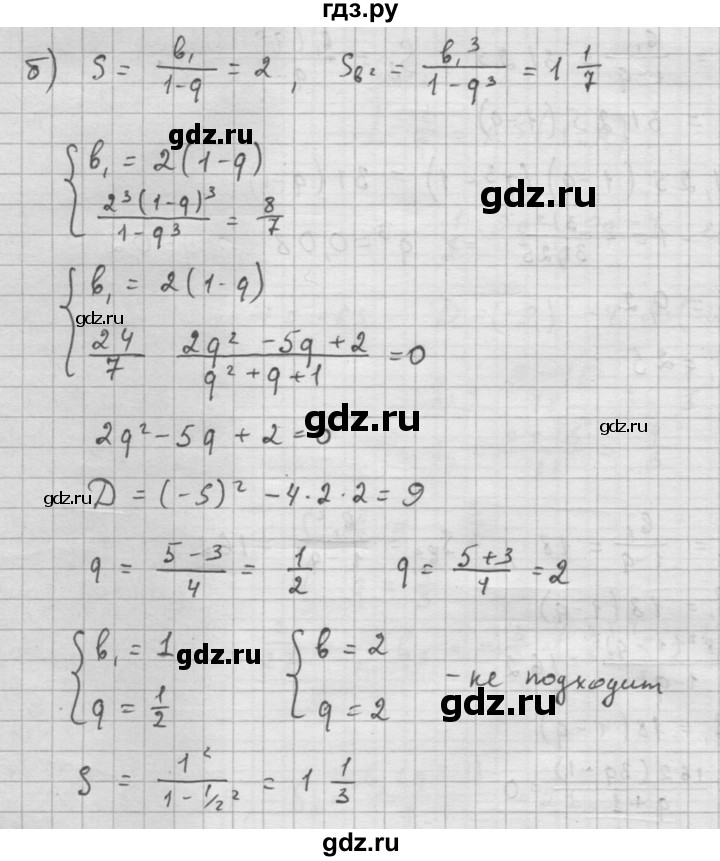 гдз.ру
б) S = b₁/(1-q) = 2, S_b² = b₁³/(1-q³) = 1 1/7
gdz.ru
{ b₁ = 2(1-q)
2³(1-q)³/(1-q³) = 8/7
gdz.ru
{ b₁ = 2(1-q)
gdz.ru
24/7 (2q² - 5q + 2)/(q² + q + 1) = 0
gdz.ru
2q² - 5q + 2 = 0
gdz.ru
gdz.ru
D = (-5)² - 4·2·2 = 9
q = (5-3)/4 = 1/2 q = (5+3)/4 = 2
gdz.ru
{ b₁ = 1 { b = 2
gdz.ru
- не подходит
q = 1/2 q = 2
gdz.ru
S = 1²/(1-1/2²) = 1 1/3
gdz.ru
gdz.ru